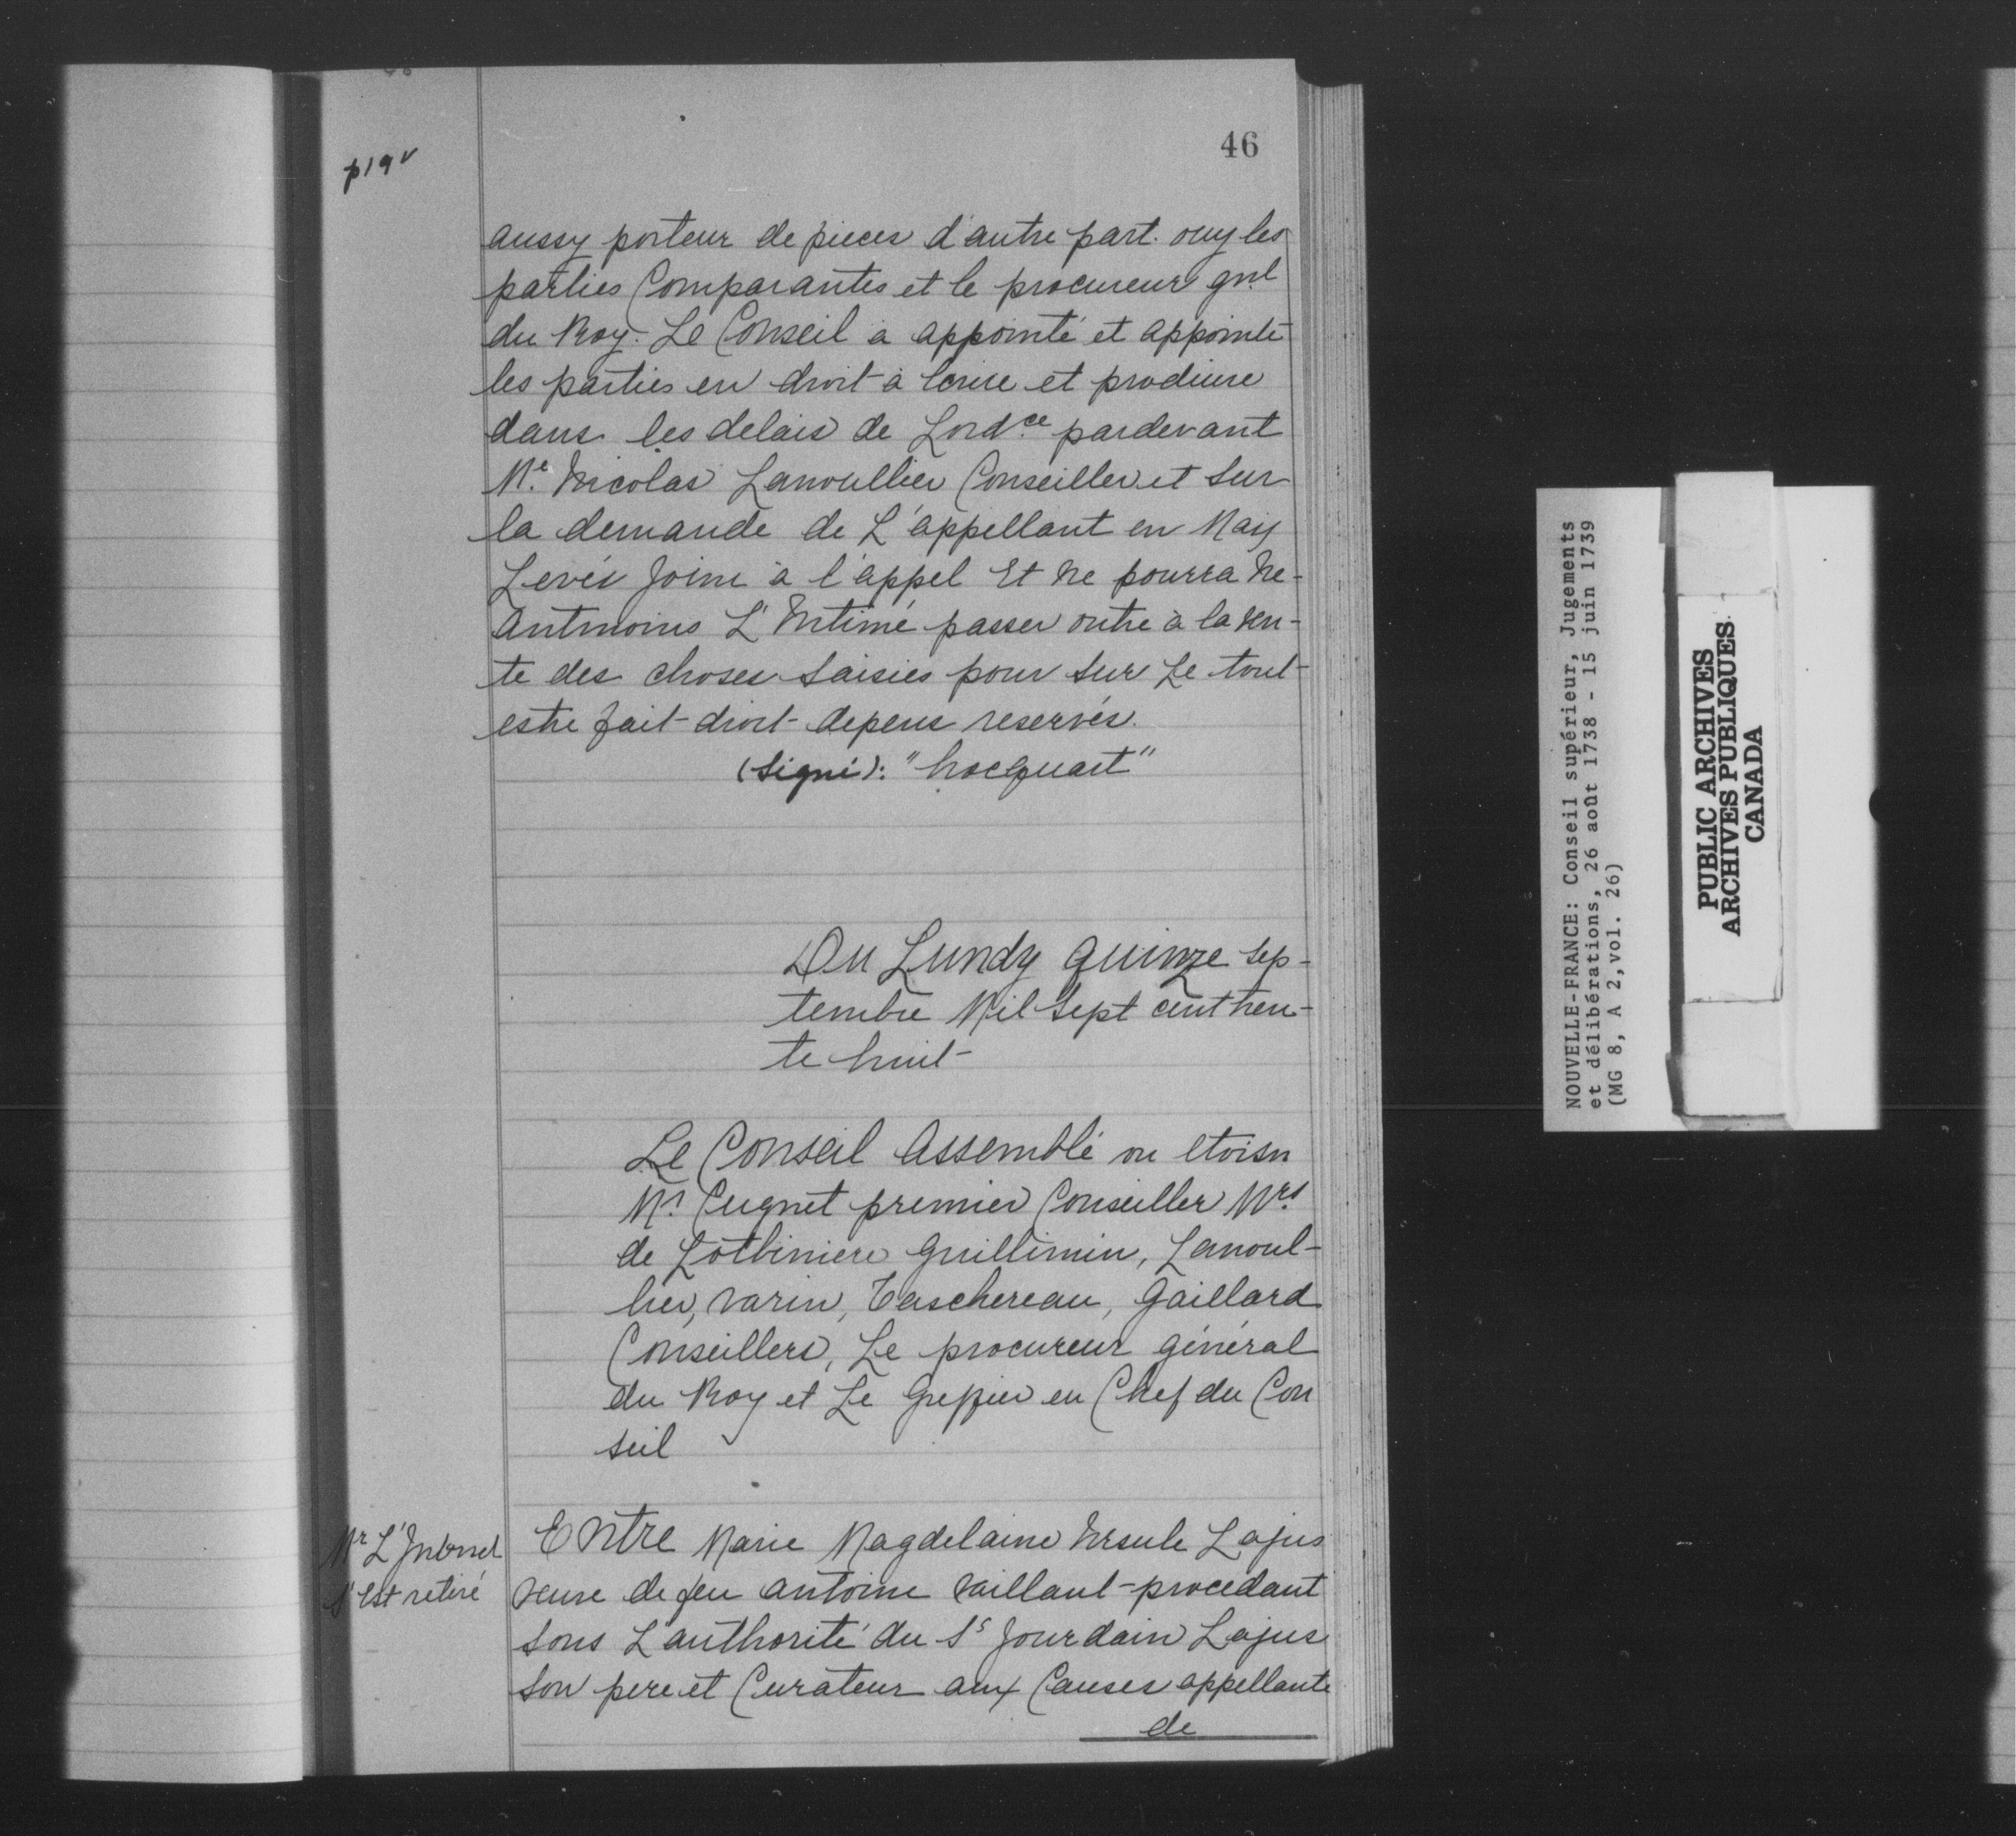 46
p19v
aussy porteur de pieces d'autre part. ouy les
parties Comparantes et le procureur gnl
du Roy. Le Conseil a appointé et appointe
les parties en droit à Ecrire et produire
dans les delais de Lordce pardevant
Me. Nicolas Lanoullier Conseiller et sur
la demande de L'appellant en Main
Levée Joint à l'appel Et ne pourra Ne-
antmoins L'Intimé passer outre à la ven-
te des choses saisies pour sur Le tout
estre fait droit depens reservés.
(signé): "hocquart"
Du Lundy quinze sep-
tembre Mil Sept cent tren-
te huit
Le Conseil Assemblé ou etoisn
Mr. Cugnet premier Conseiller Mrs.
de Lotbiniere Guillimin, Lanoul-
lier, Varin, Taschereau, Gaillard
Conseillers, Le procureur général
du Roy et Le Greffier en Chef du Con
seil
Mr L'Intend
s'est retiré
Entre Marie Magdelaine Ursule Lajus
veuve de feu Antoine Vaillant procedant
sous L'authorité du Sr Jourdain Lajus
son pere et Curateur aux Causes appellante
de
NOUVELLE-FRANCE: Conseil supérieur, Jugements
et délibérations, 26 août 1738 - 15 juin 1739
(MG 8, A 2,vol. 26)
PUBLIC ARCHIVES
ARCHIVES PUBLIQUES
CANADA